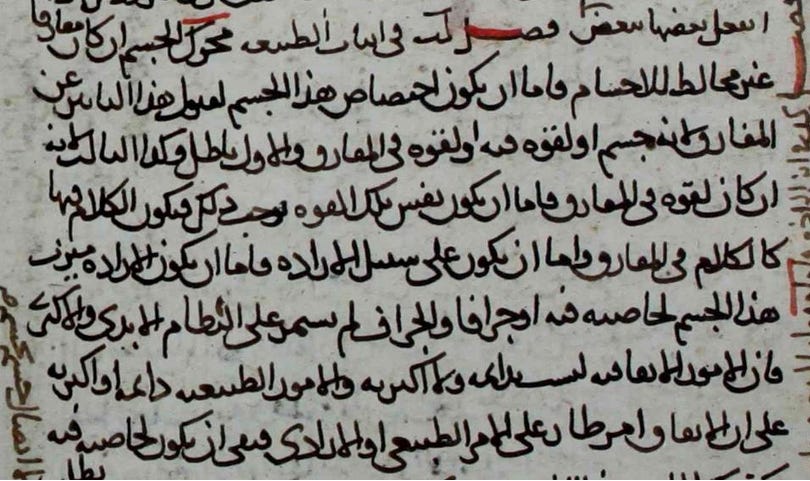 بعضها ببعض فصل في اثبات الطبيعه محرك الجسم ان كان مفارقا
غير مخالط للاجسام فاما ان يكون اختصاص هذا الجسم لقبول هذا التاثير عن
المفارق لانه جسم او لقوه فيه او لقوه في المفارق والاول باطل وكذا الثالث لانه
ان كان لقوه في المفارق فاما ان يكون نفس تلك القوه توجب ذلك فيكون الكلام فيها
كالكلام في المفارق واما ان يكون على سبيل الاراده فاما ان يكون الاراده ميزت
هذا الجسم لخاصيه فيه او جزافا والجزاف لم يستمر على النظام الابدي والاكثري
فان الامور الاتفاقيه ليست بدايمه ولا اكثريه والامور الطبيعيه دايمه او اكثريه
على ان الاتفاق امر طار على الامر الطبيعي او الارادي فبقى ان يكون لخاصيه فيه